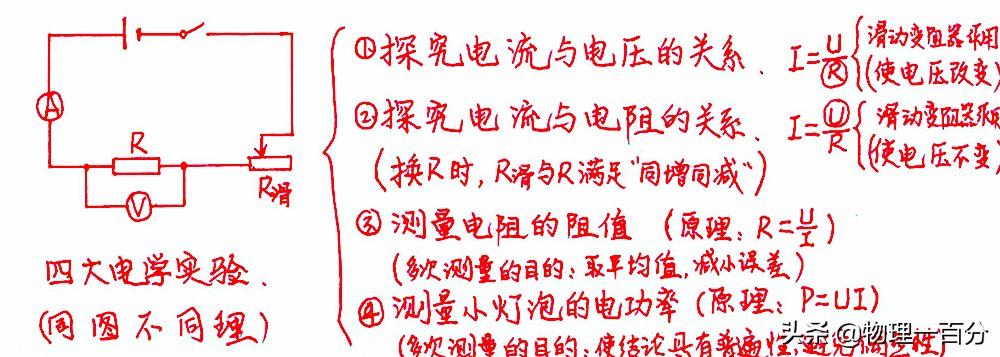 ① 探究电流与电压的关系. I=U/R {滑动变阻器作用
(使电压改变)
② 探究电流与电阻的关系. I=U/R {滑动变阻器作用
(使电压不变)
(换R时, R滑与R满足"同增同减")
③ 测量电阻的阻值 (原理: R=U/I)
(多次测量的目的: 取平均值, 减小误差)
④ 测量小灯泡的电功率 (原理: P=UI)
(多次测量的目的: 使结论具有普遍性,
A
R
V
R滑
四大电学实验.
(同图不同理)
头条@物理一百分